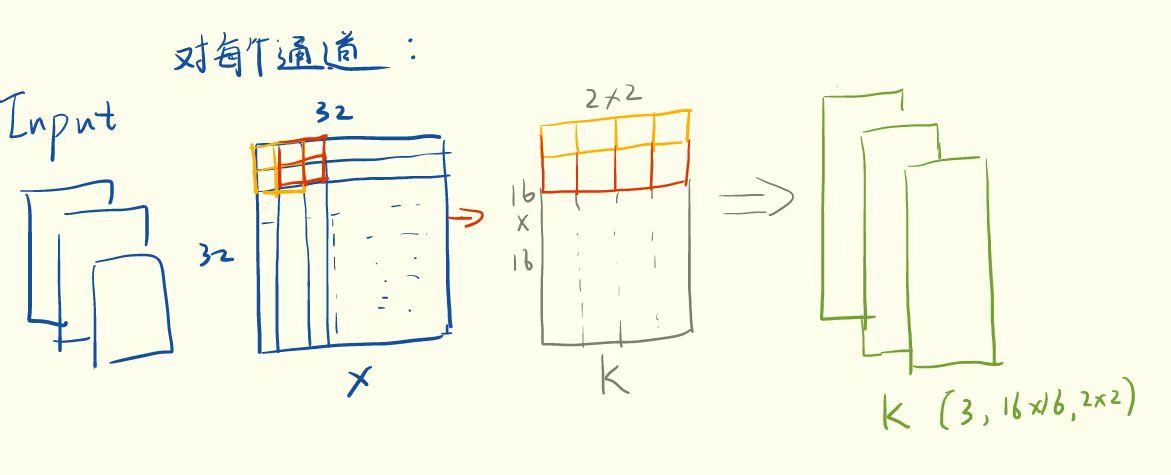 对每个通道：
Input
32
32
X
2×2
16
×
16
K
K (3, 16×16, 2×2)